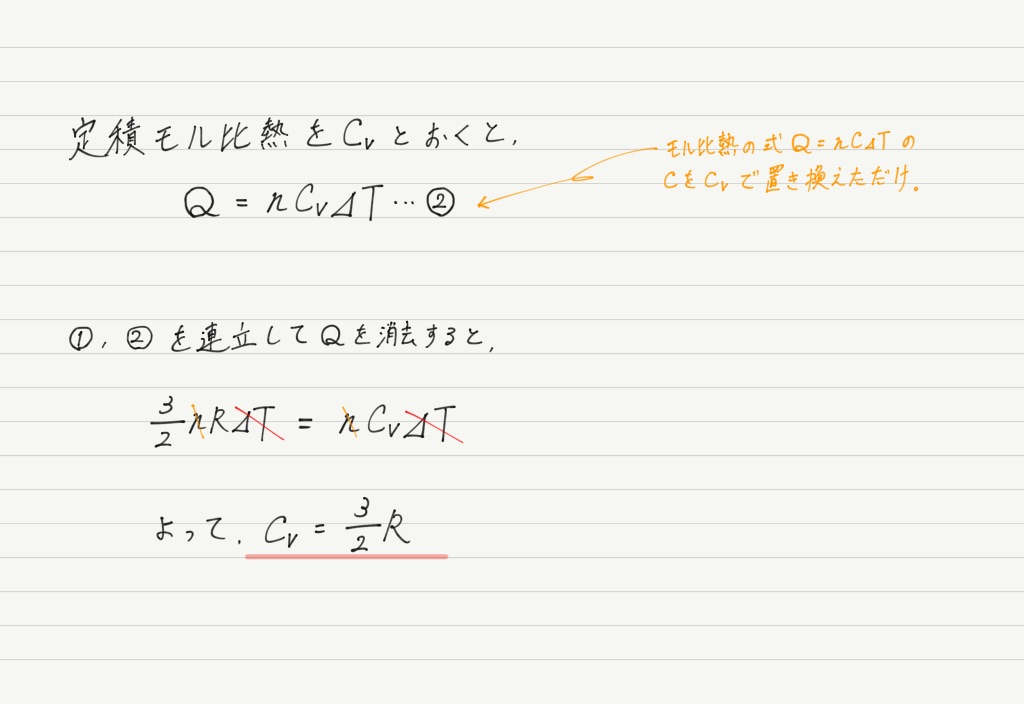 定積モル比熱をCvとおくと,
Q = nCvΔT … ②
モル比熱の式 Q=nCΔT の
CをCvで置き換えただけ。
①, ② を連立して Q を消去すると,
3/2 nRΔT = nCvΔT
よって, Cv = 3/2 R